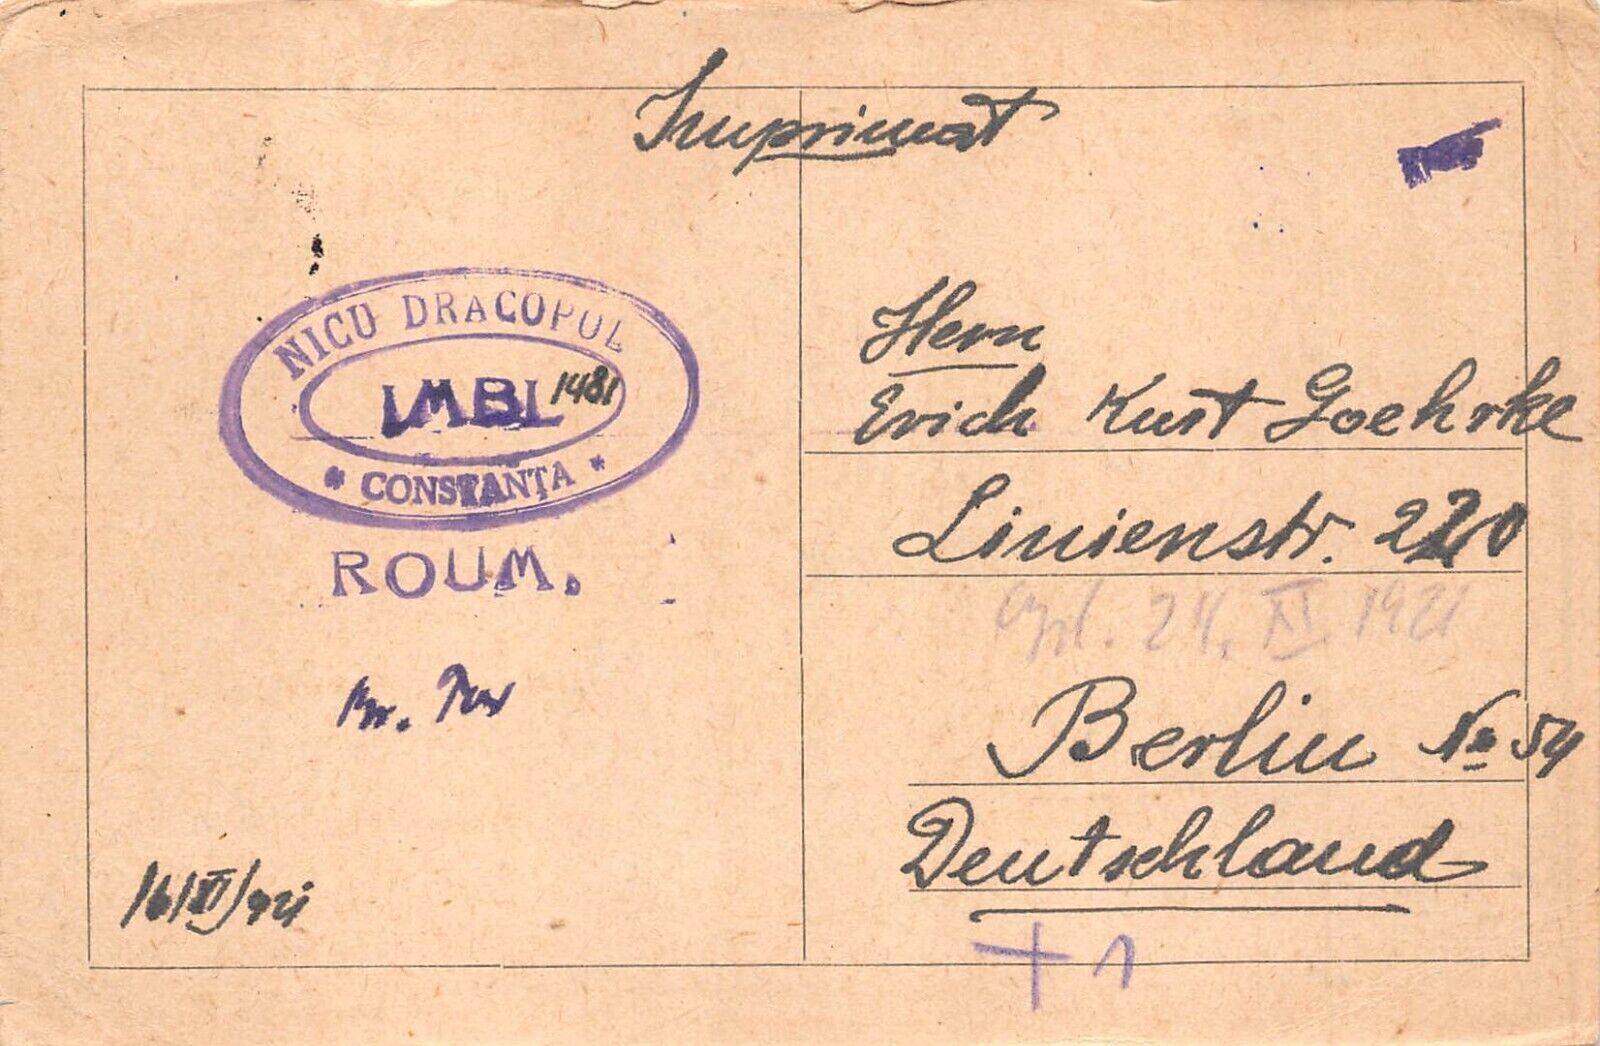 Imprimat
NICU DRACOPOL
IMBL 1481
* CONSTANȚA *
ROUM.
Herrn
Erich Kurt Goehrke
Linienstr. 220
24. XI 1921
Berlin No 54
Deutschland
16/XI/921
+ 1